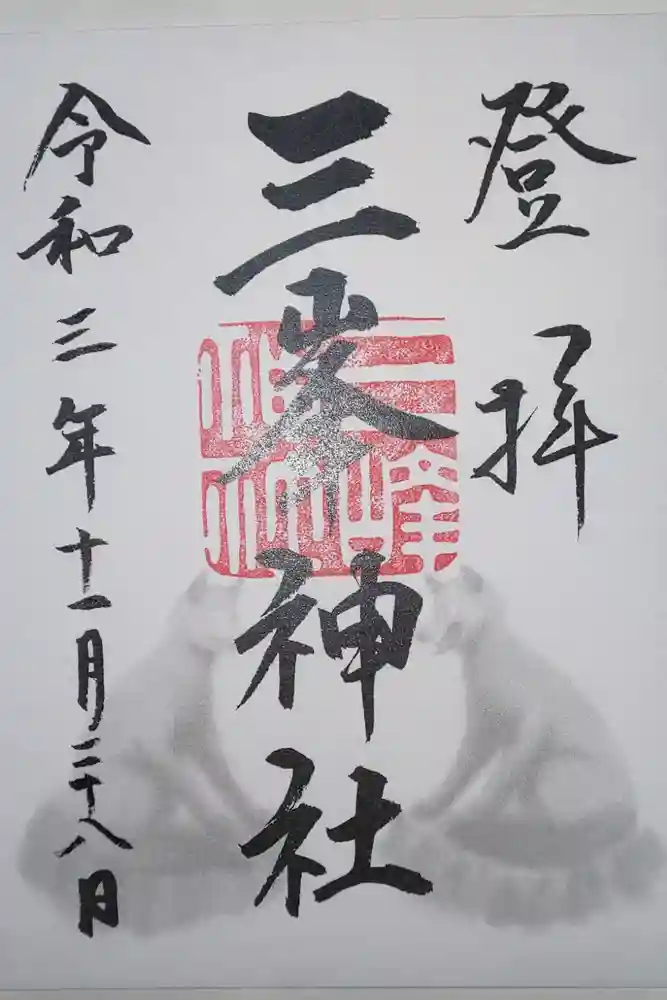 登拝
三峯神社
三峰神社
令和三年十一月二十八日